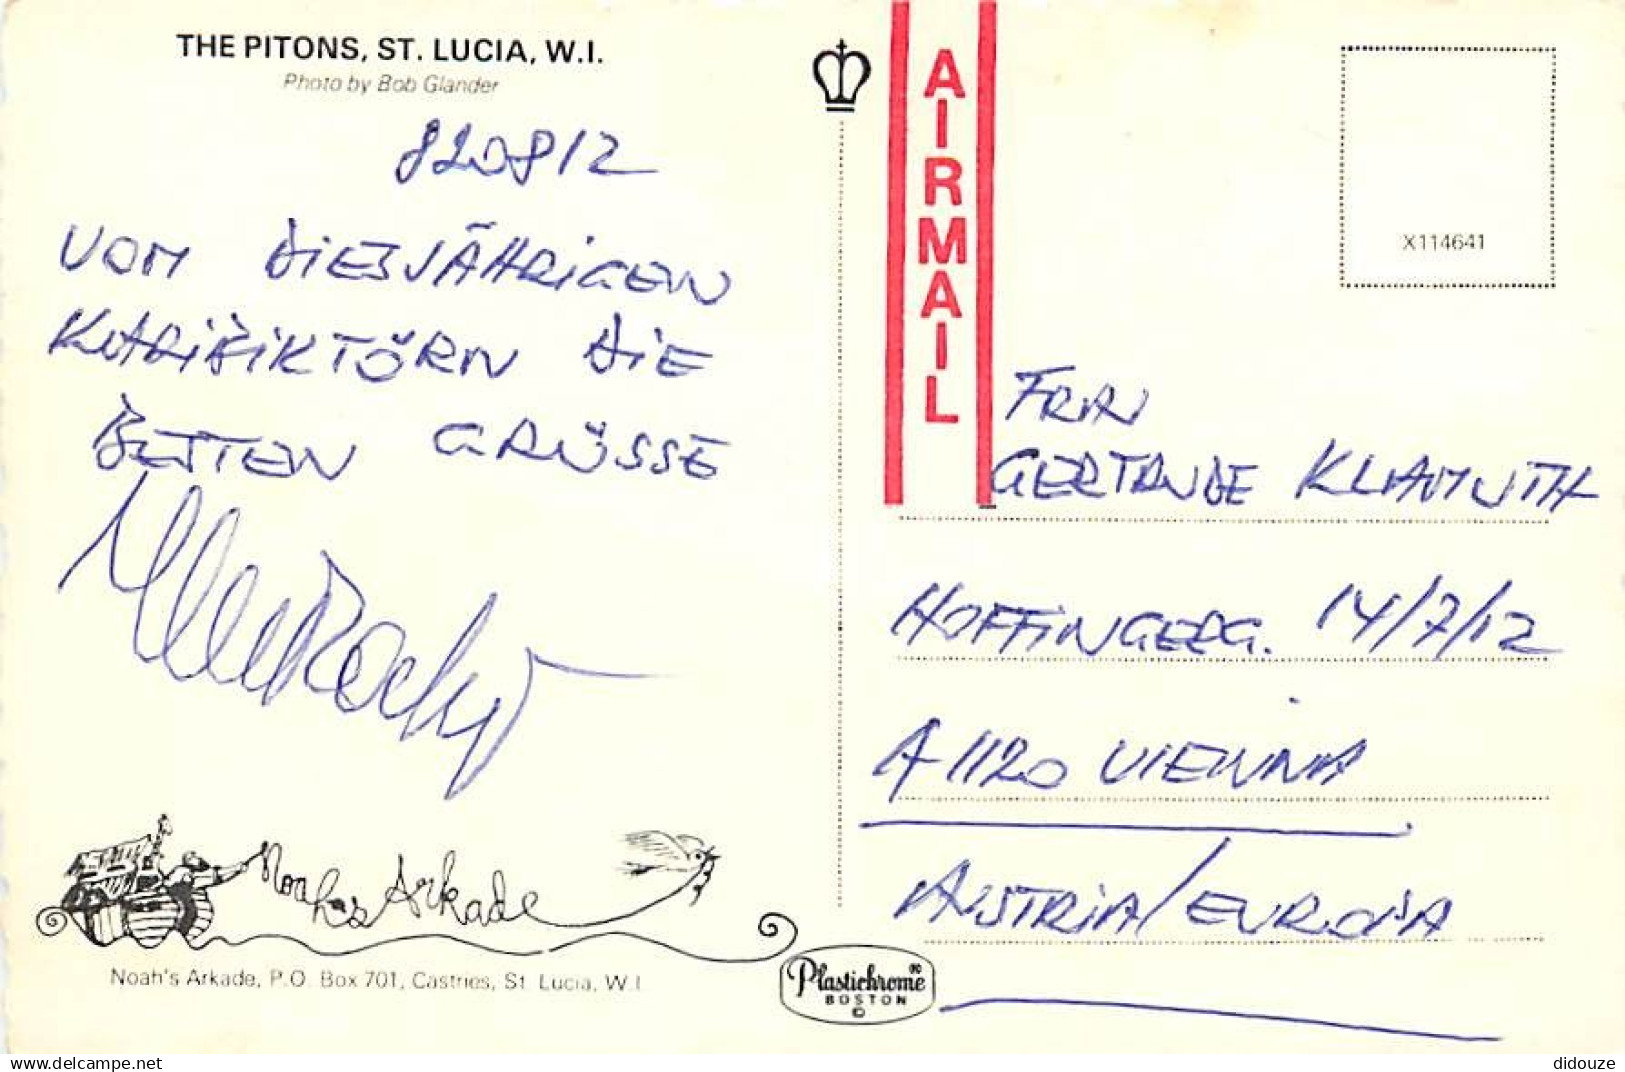 THE PITONS, ST. LUCIA, W.I.
Photo by Bob Glander
820812
VOM DIESJÄHRIGEN
KARIBIKTÖRN DIE
BESTEN GRÜSSE
Noah's Arkade
Noah's Arkade, P.O. Box 701, Castries, St. Lucia, W.I.
Plastichrome®
BOSTON
©
AIRMAIL
X114641
FRAU
GERTRUDE KLIAMUTH
HOFFINGERG. 14/7/12
A 1120 VIENNA
AUSTRIA/EUROPA
didouze